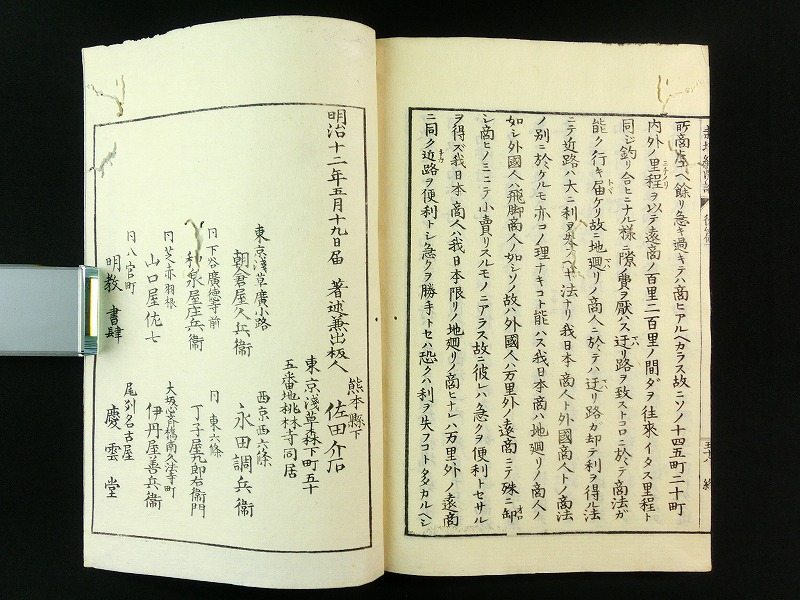 所商売ヘ餘リ急キ過キテハ商ヒアルヘカラス故ニソノ十四五町二十町
内外ノ里程ヲ以テ遠商ノ百里二百里ノ間ダヲ往來イタス里程ト
同ジ釣リ合ヒニナル様ニ隙ノ費ヲ厭ハス迂リ路ヲ致ストコロニ於テ商法ガ
能ク行キ届ケリ故ニ地廻リノ商人ニ於テハ迂リ路カ却テ利ヲ得ル法
ニテ近路ハ大ニ利ヲ失フヘキ法ナリ我日本商人ト外國商人トノ商法
ノ別ニ於ケルモ亦コノ理ナキコト能ハス我日本商人ハ地廻リノ商人ノ
如シ外國人ハ飛脚商人ノ如シソノ故ハ外國人ハ万里外ノ遠商ニテ殊ニ卸
シ商ヒノミニテ小賣リスルモノニアラス故ニ彼レハ急クヲ便利トセサル
ヲ得ズ我日本商人ハ我日本限リノ地廻リノ商ヒナレハ万里外ノ遠商
ニ同ク近路ヲ便利トシ急クヲ勝手トセハ恐クハ利ヲ失フコト多カルヘシ
明治十二年五月十九日届
著述兼出板人
熊本縣下
佐田介石
東京淺草森下町五十
五番地桃林寺同居
東京淺草廣小路
朝倉屋久兵衞
西京西六條
永田調兵衞
同下谷廣徳寺前
和泉屋庄兵衞
同東六條
丁子屋九郎右衞門
同芝赤羽根
山口屋佐七
大坂心斉橋南久法寺町
伊丹屋善兵衞
同八官町
明教書肆
尾刕名古屋
慶雲堂